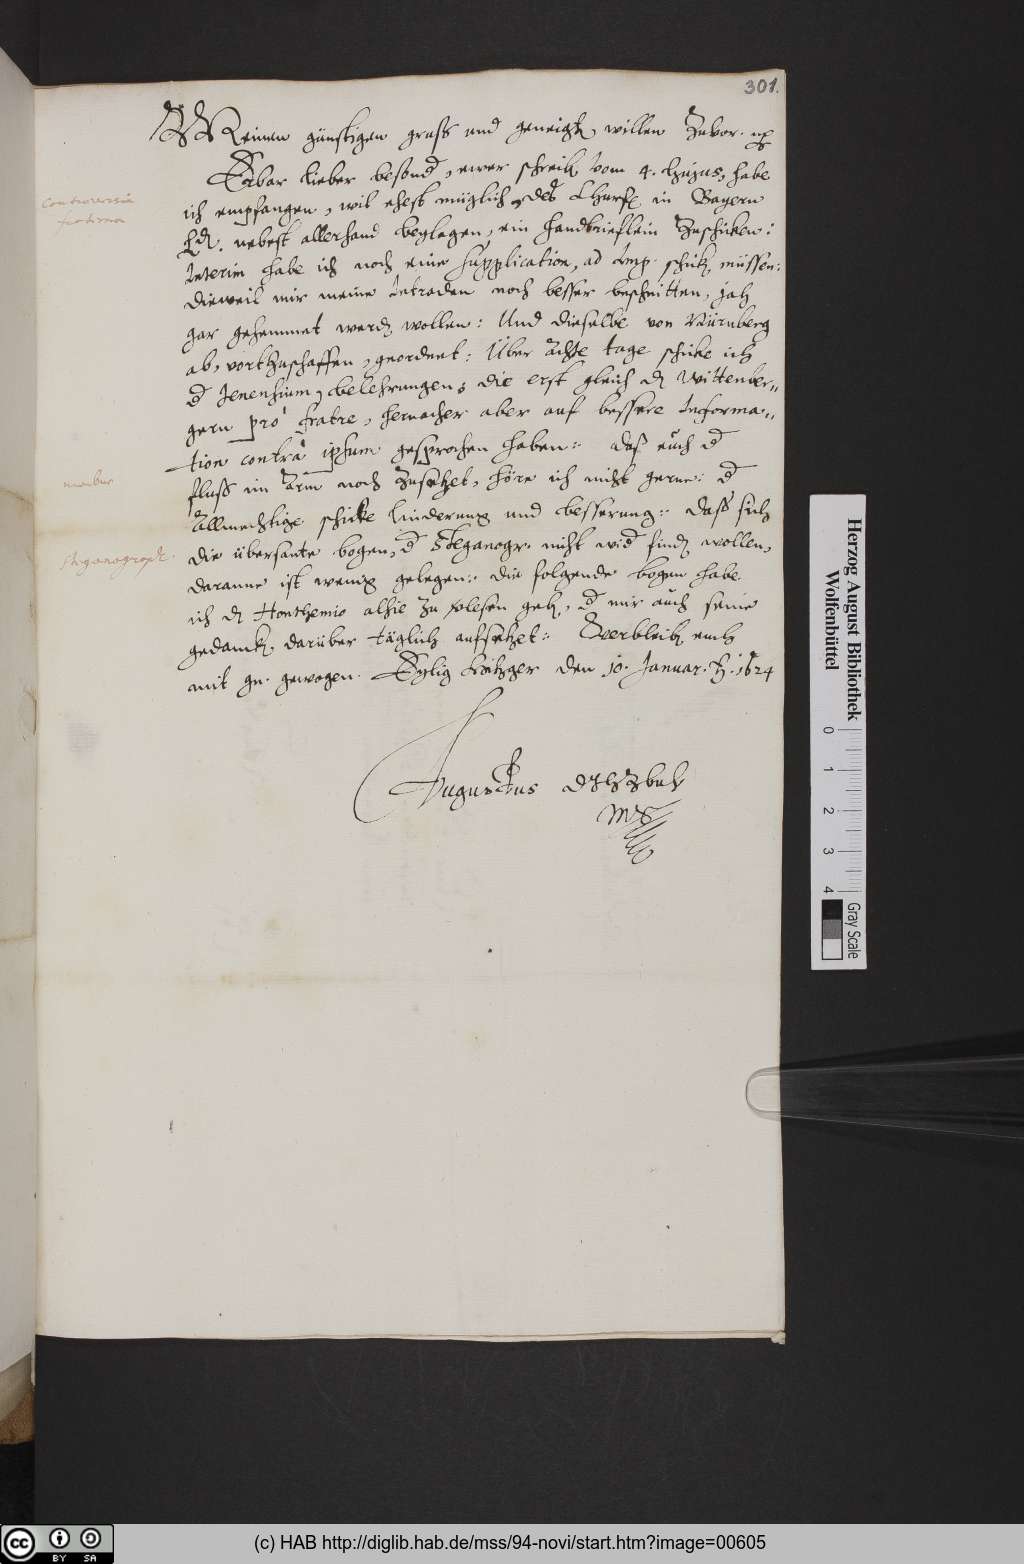 301.
Meinen günstigen gruß und geneigten willen zuvor.
Erbar lieber besonder, ewer schreiben vom 4. hujus, habe
controversia
fraterna
ich empfangen, wil ehest müglich, des Churf. in Bayern
Ld. nebest allerhand beylagen, ein handbrieflein zuschicken:
Interim habe ich noch eine supplication, ad Imp. schicken müssen:
dieweil mir meine Intraden noch besser beschnitten, jah
gar gehemmet werden wollen: Und dieselbe von Nürnberg
ab, vortzuschaffen, geordnet: Über achte tage schicke ich
d Jenensium, belehrungen, die erst gleich den Wittenber-
gern pro fratre, hernacher aber auf bessere Informa-
tion contra ipsum gesprochen haben: daß euch d
morbus
fluß im arm noch zusetzet, höre ich nicht gerne: d
Allmechtige schicke linderung und besserung: daß sich
Steganograph.
die übersante bogen, d Steganogr. nicht wid finden wollen,
daranne ist wenig gelegen: die folgende bogen habe
ich d Honthemio alhie zu lesen geben, d mir auch seine
gedancken darüber täglich aufsetzet: Verbleibe euch
mit gn. gewogen. Eylig Hitzger den 10. Januar. 1624
Augustus
Herzog August Bibliothek
Wolfenbüttel
0 1 2 3 4
Gray Scale
(c) HAB http://diglib.hab.de/mss/94-novi/start.htm?image=00605
cc BY SA